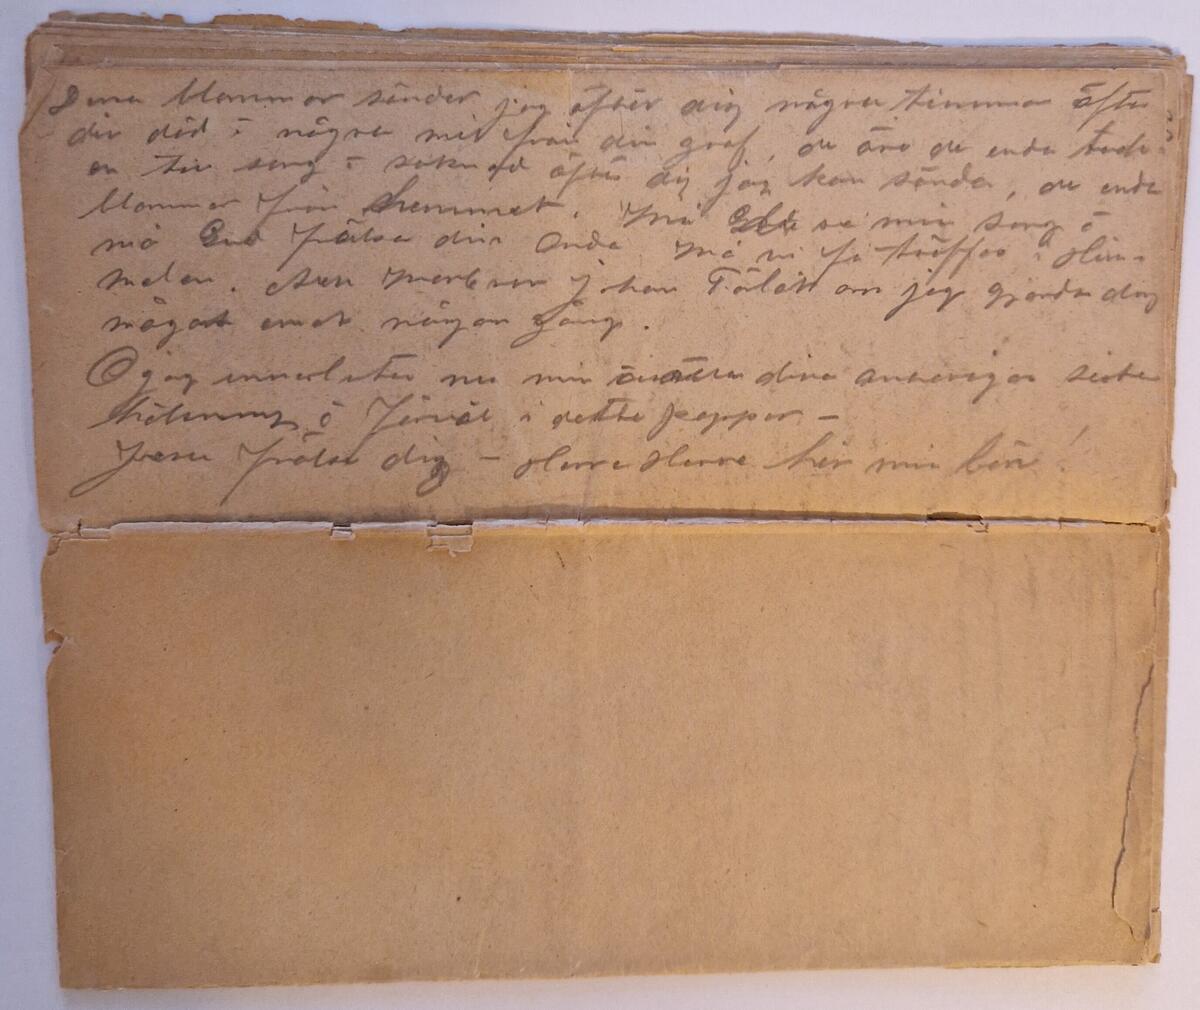 Dessa blommor sänder jag öfter dig några timmar öfter
din död i några mil från din graf, de äro de enda
en tår sorg i saknad öfter dig jag kan sända, de enda
blommor från hemmet. Må Gud se min sorg o
må Gud frälsa din anda må vi få träffas i Him-
melen. Johan Förlåt om jag gjorde dig
något emot någon gång.
O jag nu min dina anhöriga sista
hälsning o farväl i detta papper –
Jesu frälse dig – Herre Herre hör min bön!